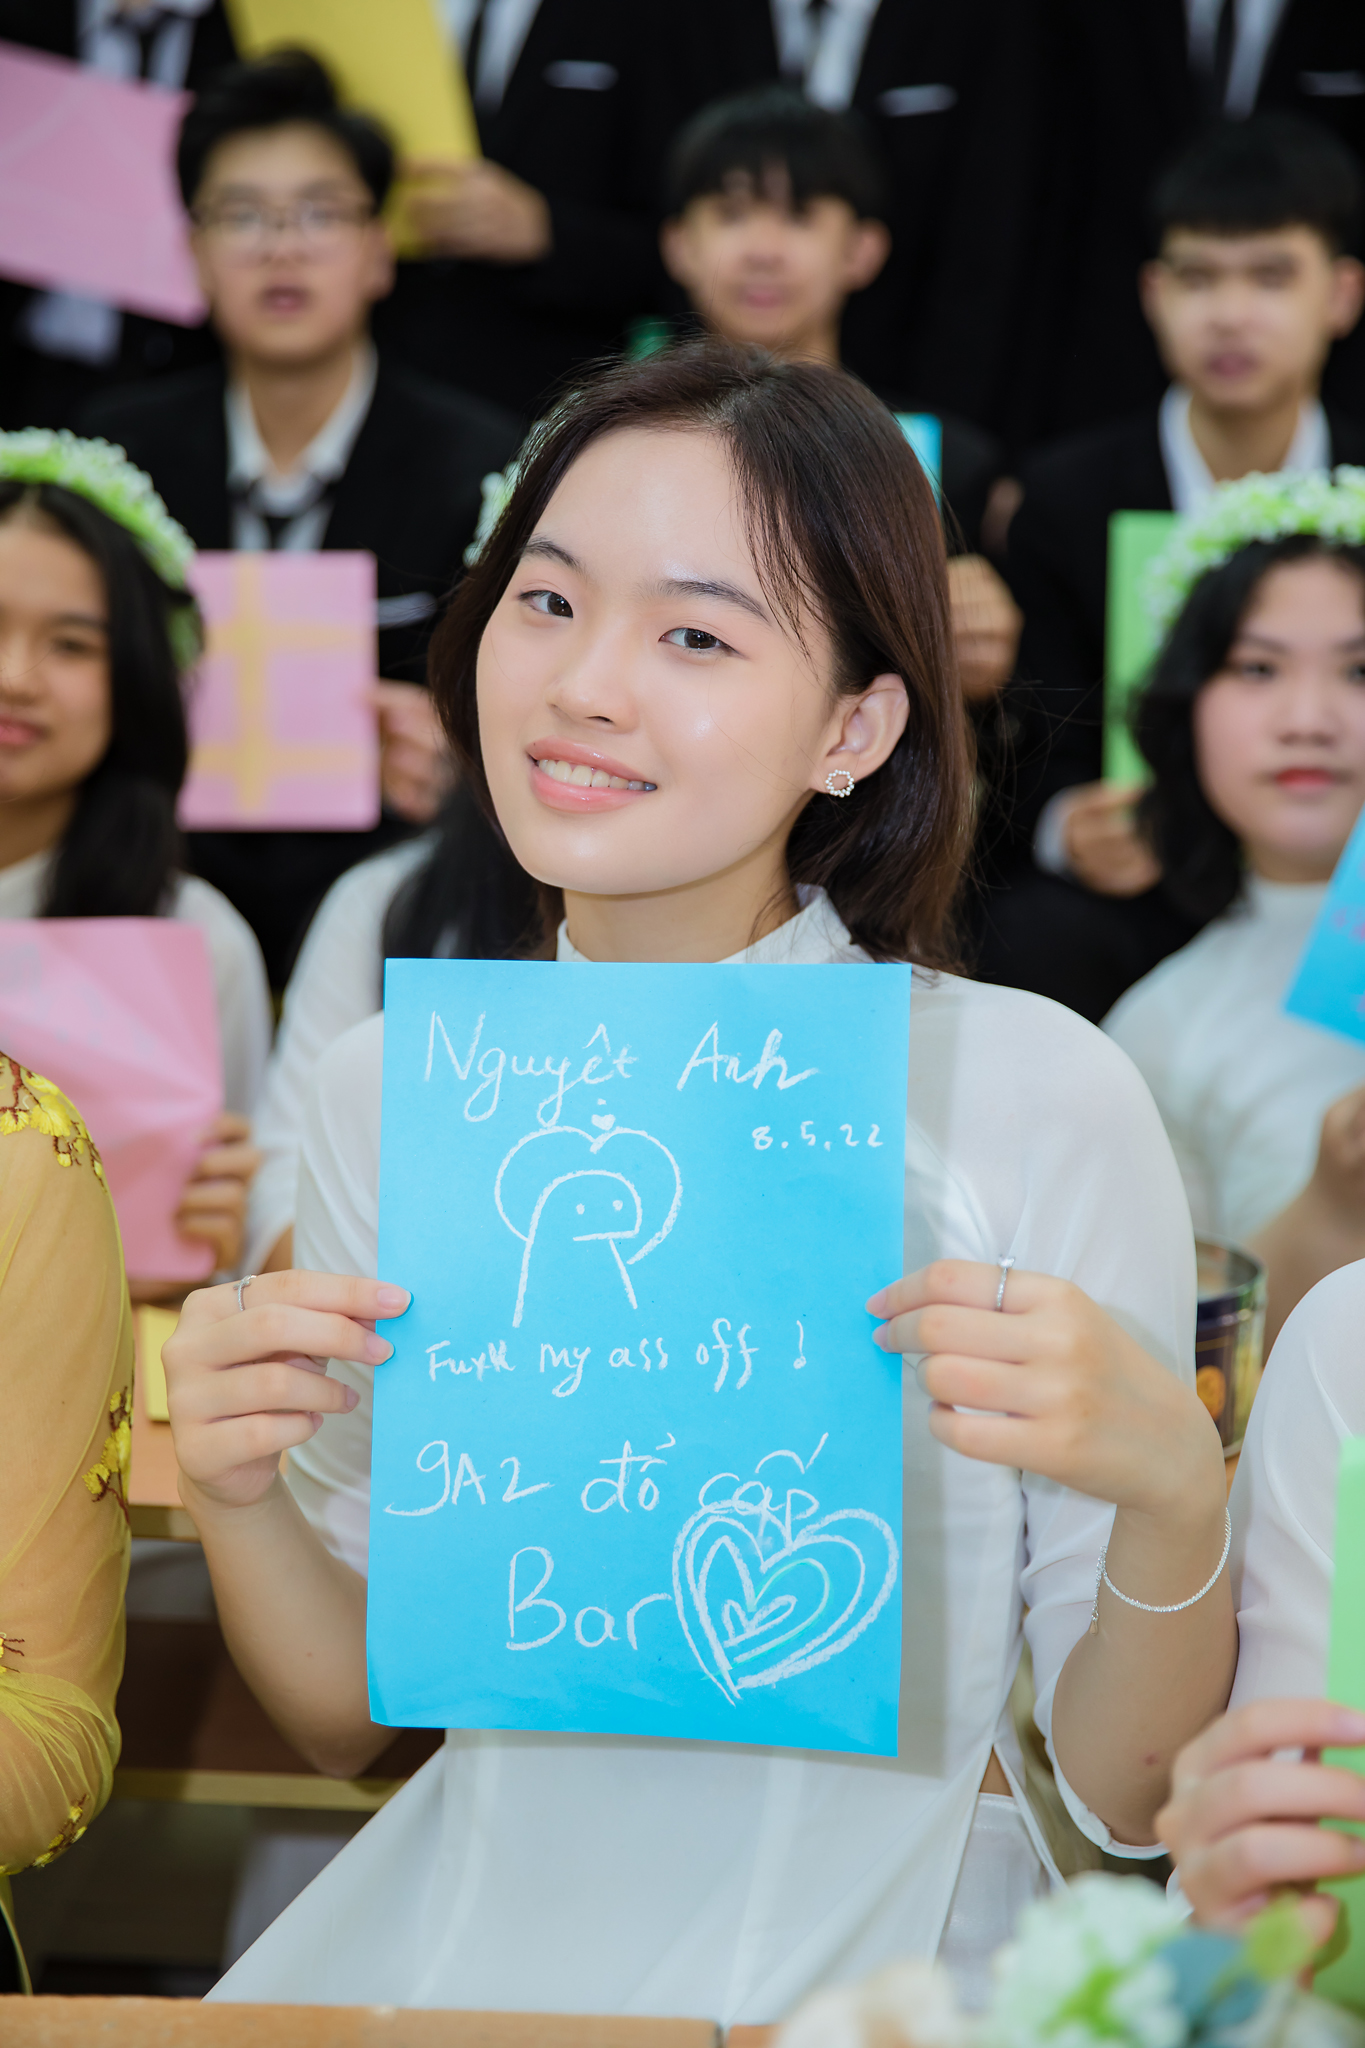 Nguyệt Anh
8.5.22
Fuxk my ass off !
9A2 đổ cấp
Bar